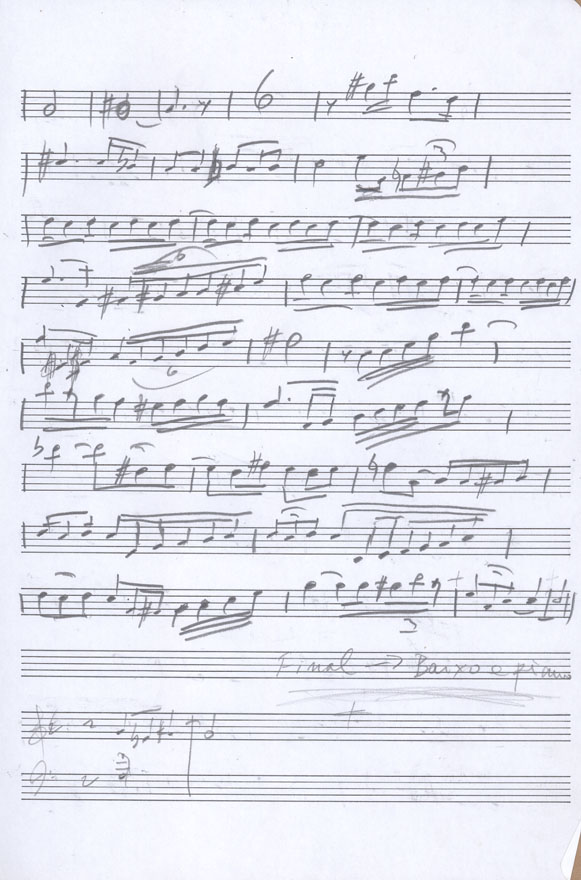 6
3
6
6
3
Final → Baixo e piano